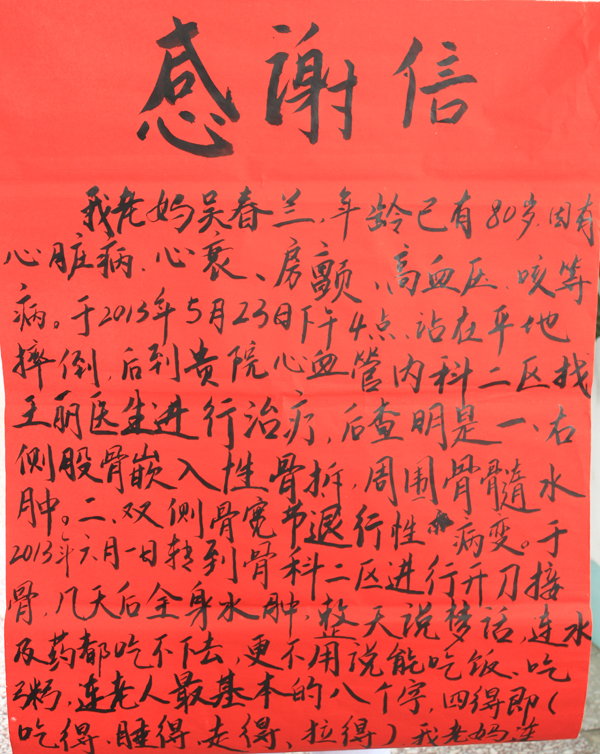 感谢信
我老妈吴春兰.年龄已有80岁.因有
心脏病.心衰、房颤、高血压.咳等
病。于2013年5月23日下午4点.站在平地
摔倒,后到贵院心血管内科二区找
王丽医生进行治疗,后查明是一、右
侧股骨嵌入性骨折,周围骨髓水
肿。二、双侧骨宽节退行性病变。于
2013年六月一日转到骨科二区进行开刀接
骨,几天后全身水肿,整天说梦话,连水
及药都吃不下去,更不用说能吃饭、吃
粥,连老人最基本的八个字,四得即(
吃得、睡得、走得、拉得)我老妈连